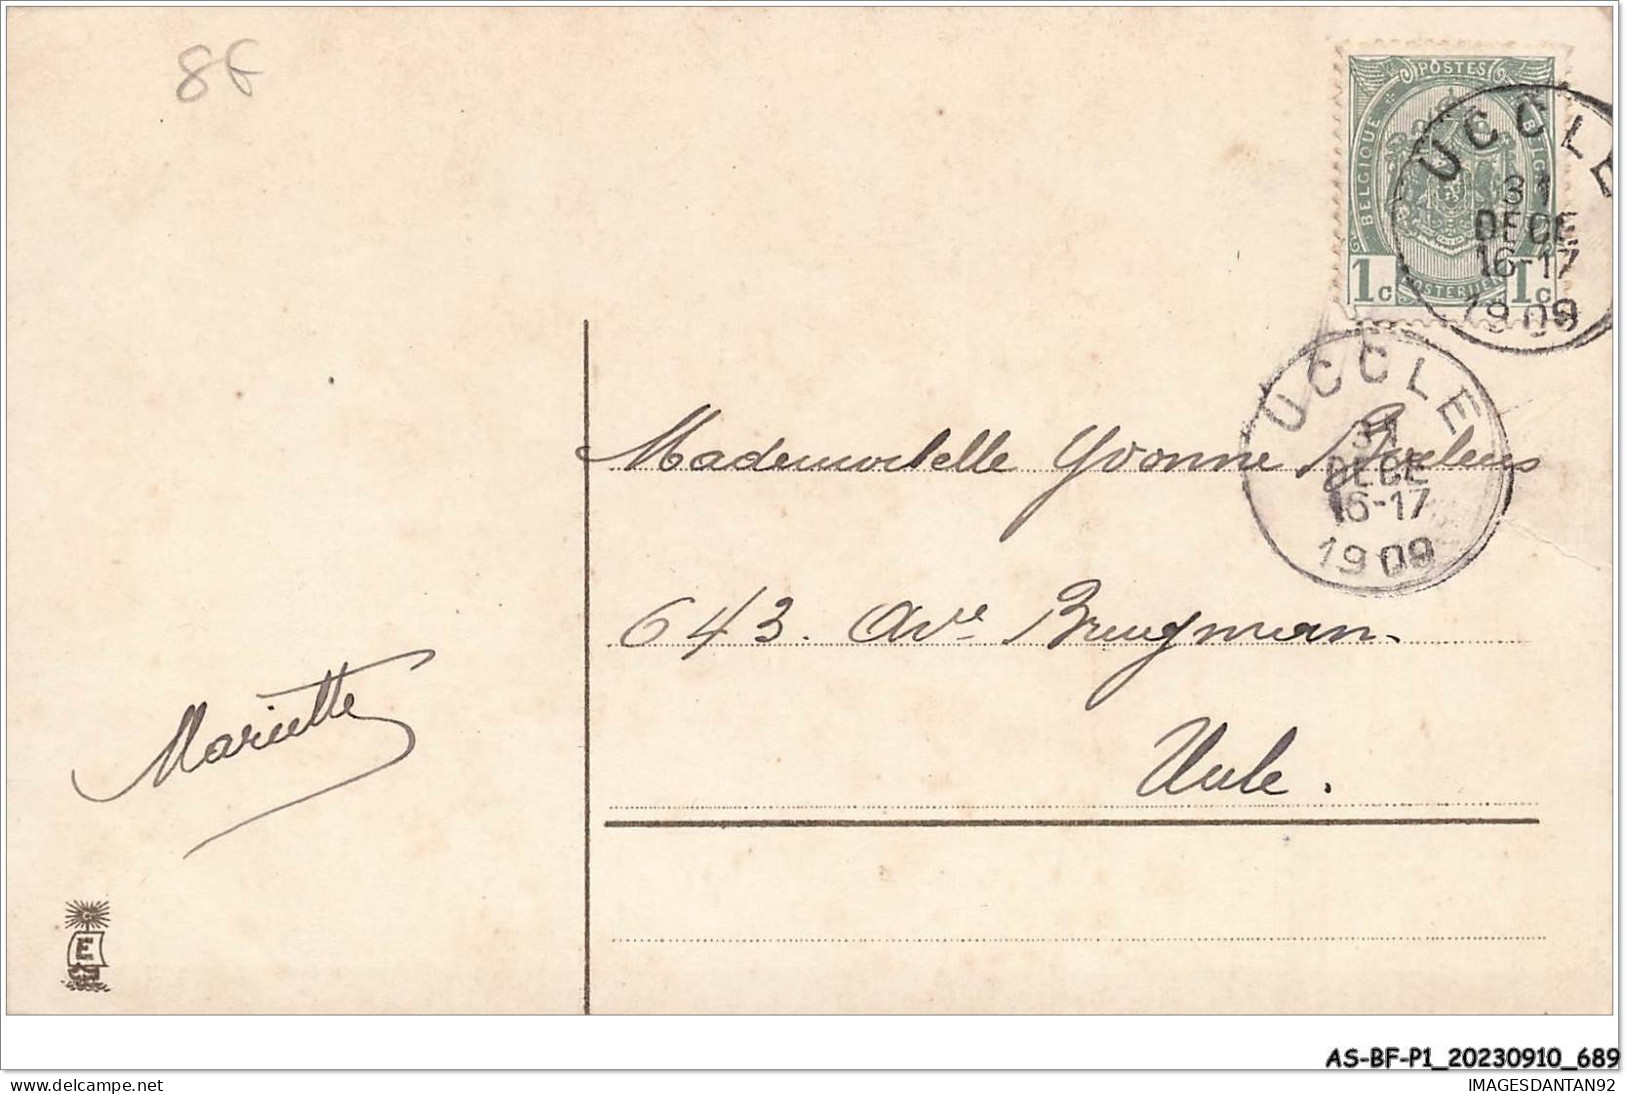 8f
POSTES
BELGIQUE
BELGI
1c 1c
OSTERIJEN
UCCLE
31
DECE
16-17
1909
UCCLE
31
DECE
16-17
1909
Mademoiselle Yvonne
643. Ave Brugman.
Uccle.
Mariette
E
AS-BF-P1_20230910_689
www.delcampe.net
IMAGESDANTAN92